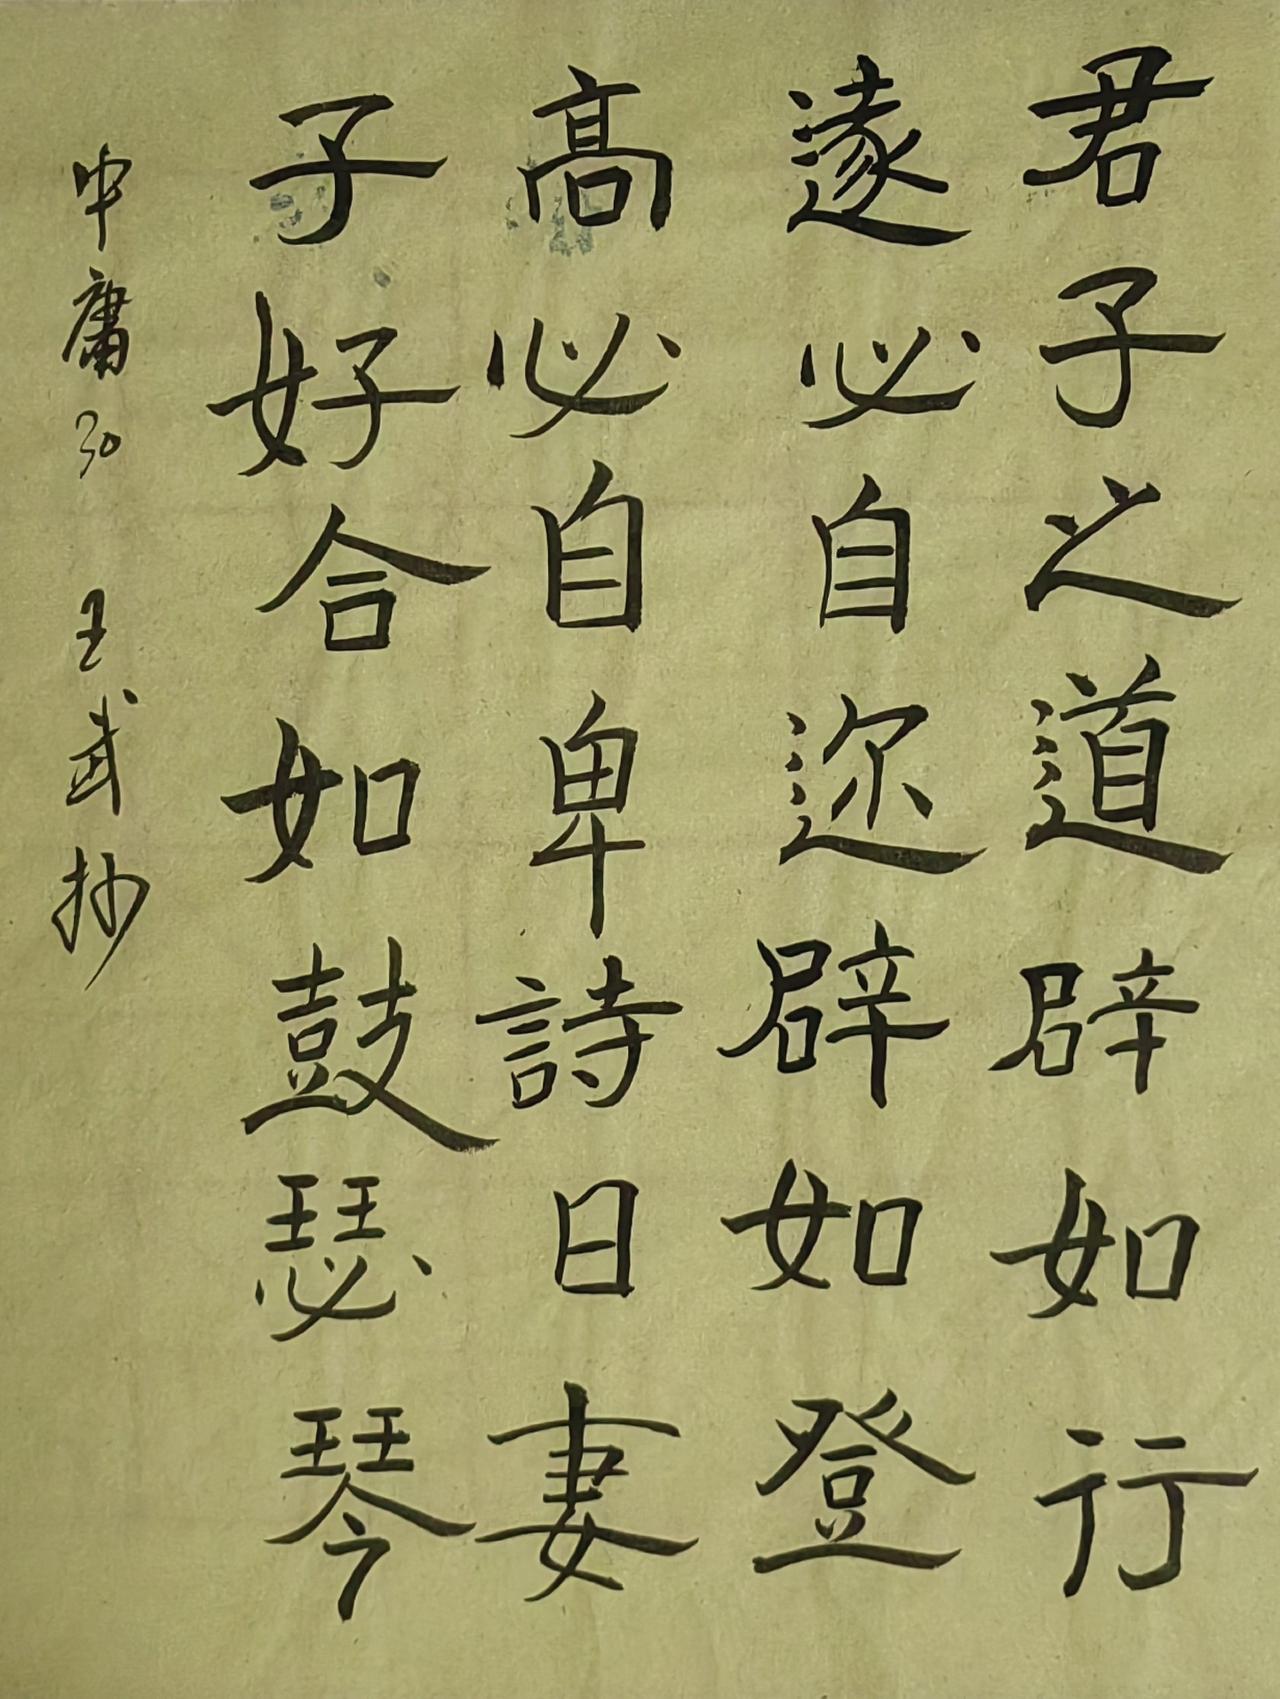 君子之道辟如行
遠必自迩辟如登
高必自卑詩曰妻
子好合如鼓瑟琴
中庸句 王武抄